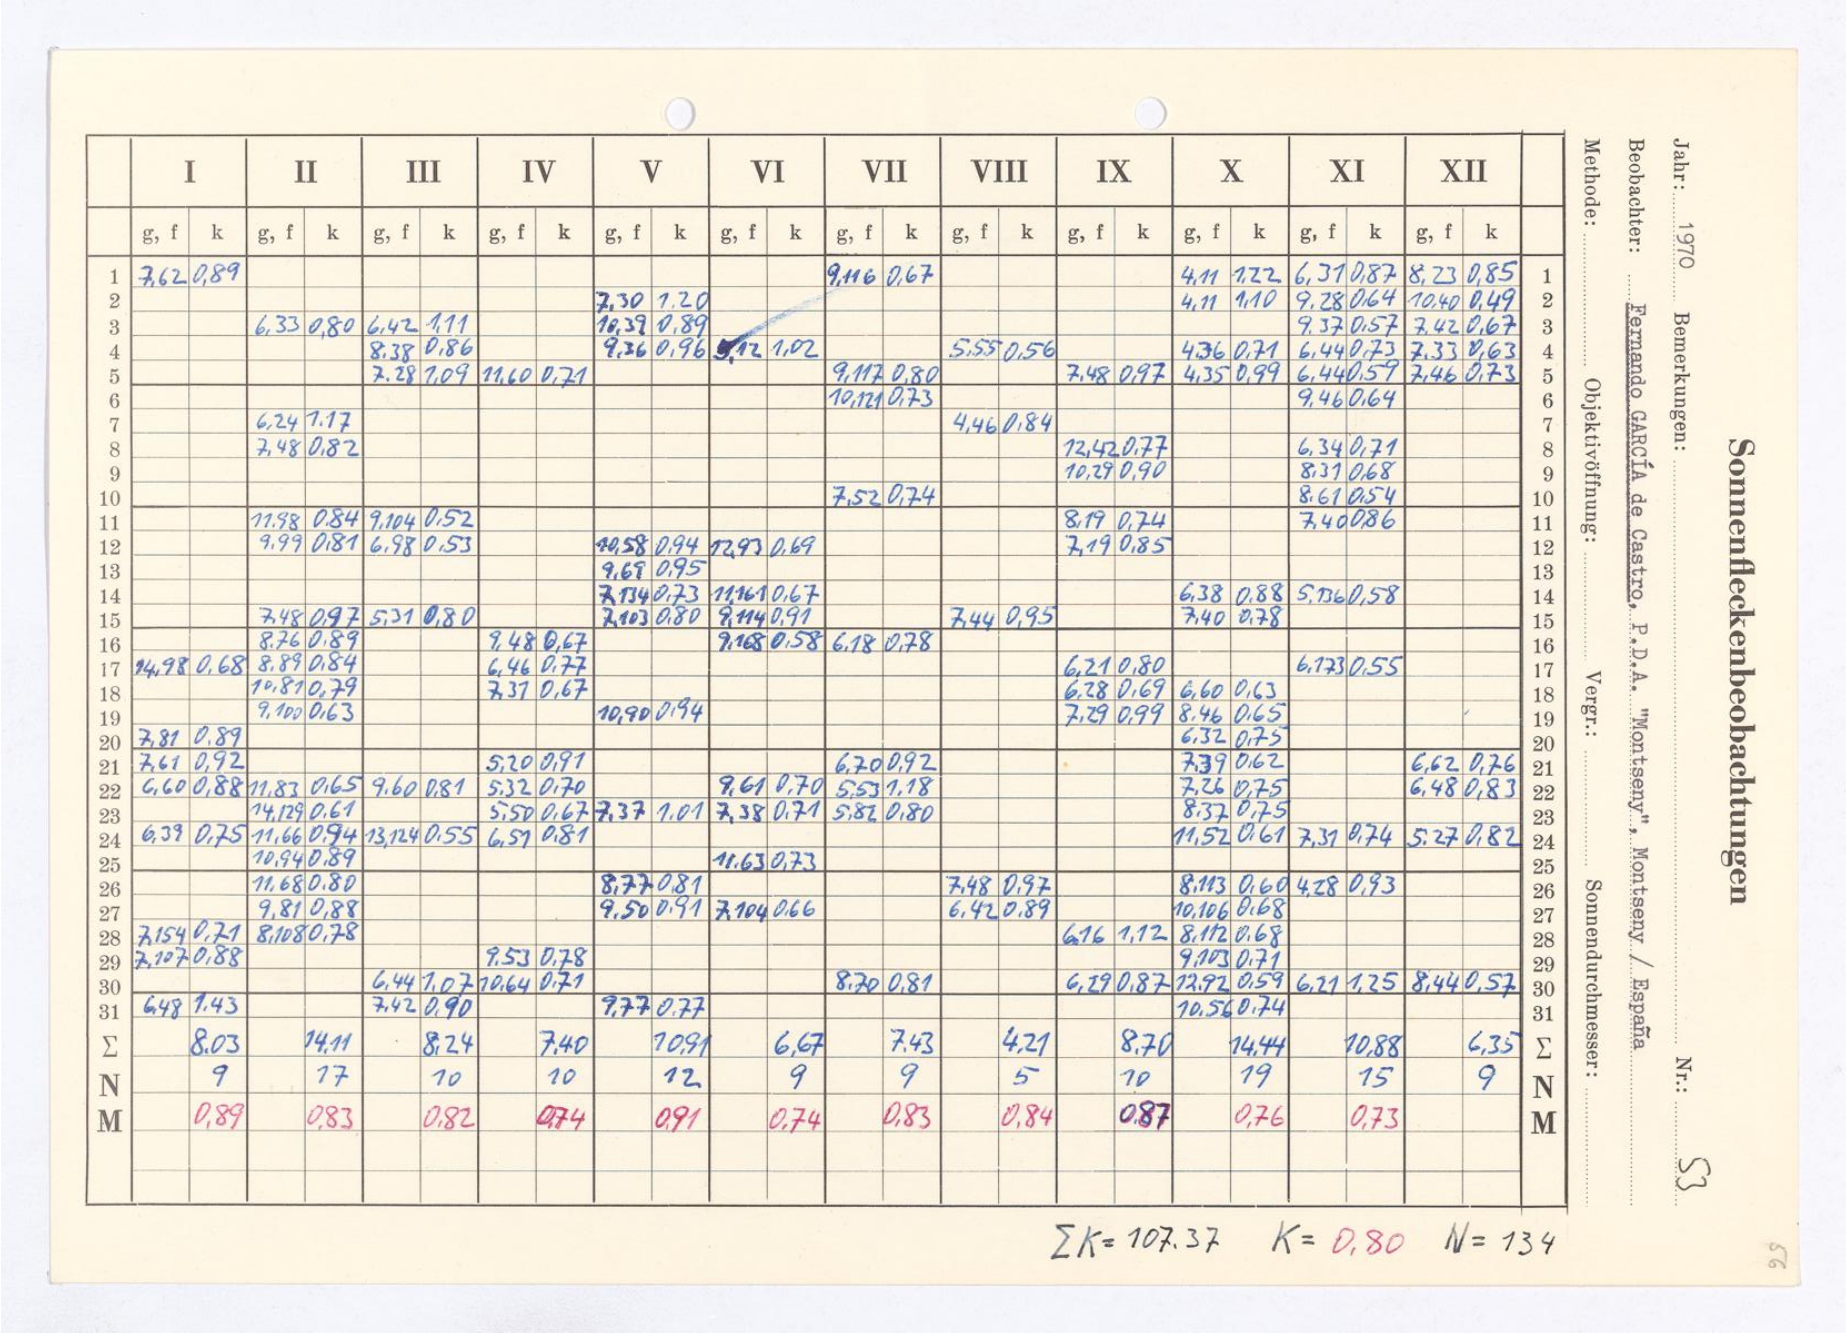 Sonnenfleckenbeobachtungen
Jahr: 1970 Bemerkungen: Nr.: 53
Beobachter: Fernando GARCÍA de Castro, P.D.A. "Montseny", Montseny / España
Methode: Objektivöffnung: Vergr.: Sonnendurchmesser:
I II III IV V VI VII VIII IX X XI XII
g, f k g, f k g, f k g, f k g, f k g, f k g, f k g, f k g, f k g, f k g, f k g, f k
1 7,62 0,89 9,116 0,67 4,11 1,22 6,31 0,87 8,23 0,85 1
2 7,30 1,20 4,11 1,10 9,28 0,64 10,40 0,49 2
3 6,33 0,80 6,42 1,11 10,39 0,89 9,37 0,57 7,42 0,67 3
4 8,38 0,86 9,36 0,96 5,12 1,02 5,55 0,56 4,36 0,71 6,44 0,73 7,33 0,63 4
5 7,28 1,09 11,60 0,71 9,117 0,80 7,48 0,97 4,35 0,99 6,44 0,59 7,46 0,73 5
6 10,121 0,73 9,46 0,64 6
7 6,24 1,17 4,46 0,84 7
8 7,48 0,82 12,42 0,77 6,34 0,71 8
9 10,29 0,90 8,31 0,68 9
10 7,52 0,74 8,61 0,54 10
11 11,98 0,84 9,104 0,52 8,19 0,74 7,40 0,86 11
12 9,99 0,81 6,98 0,53 10,58 0,94 12,93 0,69 7,19 0,85 12
13 9,69 0,95 13
14 7,134 0,73 11,161 0,67 6,38 0,88 5,136 0,58 14
15 7,48 0,97 5,31 0,80 7,103 0,80 9,114 0,91 7,44 0,95 7,40 0,78 15
16 8,76 0,89 9,48 0,67 9,168 0,58 6,18 0,78 16
17 14,98 0,68 8,89 0,84 6,46 0,77 6,21 0,80 6,173 0,55 17
18 10,81 0,79 7,31 0,67 6,28 0,69 6,60 0,63 18
19 9,100 0,63 10,90 0,94 7,29 0,99 8,46 0,65 19
20 7,81 0,89 6,32 0,75 20
21 7,61 0,92 5,20 0,91 6,70 0,92 7,39 0,62 6,62 0,76 21
22 6,60 0,88 11,83 0,65 9,60 0,81 5,32 0,70 9,61 0,70 5,53 1,18 7,26 0,75 6,48 0,83 22
23 14,129 0,61 5,50 0,67 7,37 1,01 7,38 0,71 5,82 0,80 8,37 0,75 23
24 6,39 0,75 11,66 0,94 13,124 0,55 6,51 0,81 11,52 0,61 7,31 0,74 5,27 0,82 24
25 10,94 0,89 11,63 0,73 25
26 11,68 0,80 8,77 0,81 7,48 0,97 8,113 0,60 4,28 0,93 26
27 9,81 0,88 9,50 0,91 7,104 0,66 6,42 0,89 10,106 0,68 27
28 7,154 0,71 8,108 0,78 6,16 1,12 8,112 0,68 28
29 7,107 0,88 9,53 0,78 9,103 0,71 29
30 6,44 1,07 10,64 0,71 8,70 0,81 6,29 0,87 12,92 0,59 6,21 1,25 8,44 0,57 30
31 6,48 1,43 7,42 0,90 9,77 0,77 10,56 0,74 31
Σ 8,03 14,11 8,24 7,40 10,91 6,67 7,43 4,21 8,70 14,44 10,88 6,35 Σ
N 9 17 10 10 12 9 9 5 10 19 15 9 N
M 0,89 0,83 0,82 0,74 0,91 0,74 0,83 0,84 0,87 0,76 0,73 M
ΣK= 107.37 K= 0,80 N= 134